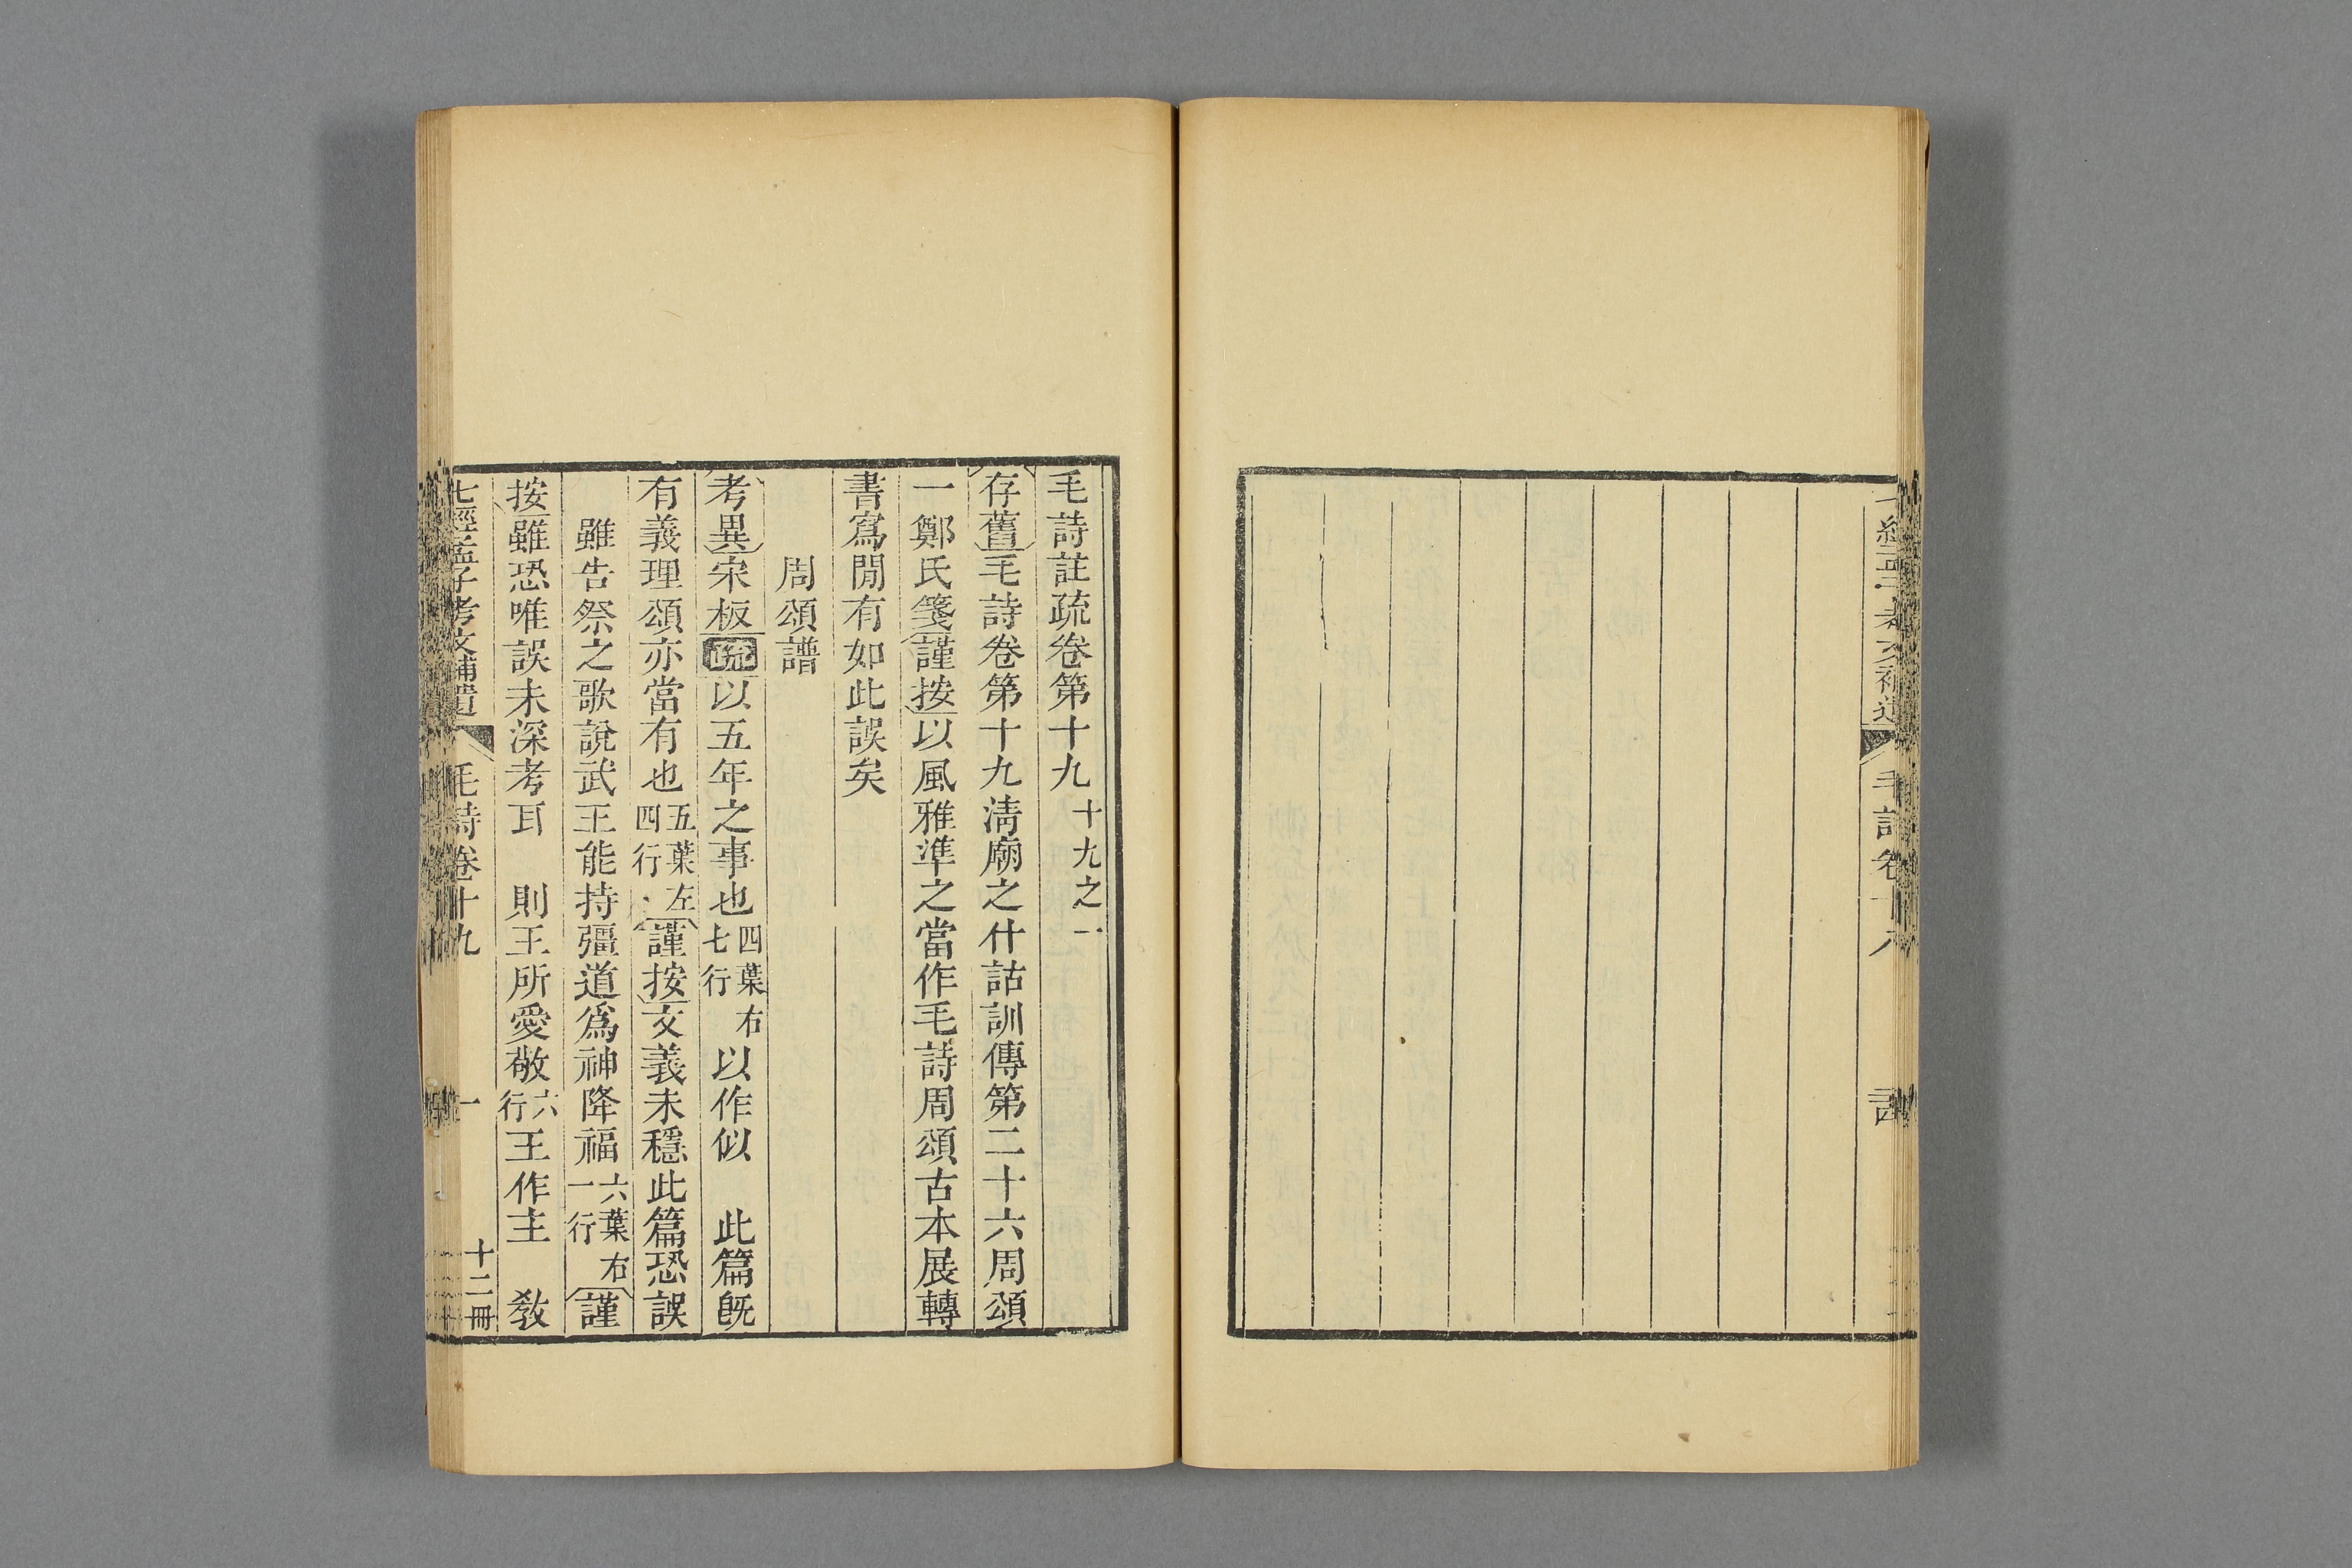 七經孟子考文補遺 毛詩卷十八
毛詩註疏卷第十九十九之一
存舊毛詩卷第十九淸廟之什詁訓傳第二十六周頌
一鄭氏箋謹按以風雅準之當作毛詩周頌古本展轉
書寫閒有如此誤矣
周頌譜
考異宋板疏以五年之事也四葉右七行以作似 此篇旣
有義理頌亦當有也五葉左四行謹按文義未穩此篇恐誤
雖告祭之歌說武王能持彊道爲神降福六葉右一行謹
按雖恐唯誤未深考耳 則王所愛敬六行王作主 敎
七經孟子考文補遺 毛詩卷十九 一 十二冊